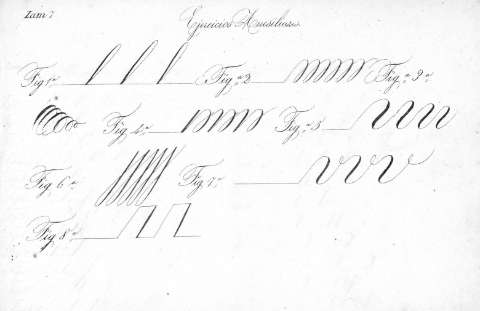 Lam 7
Ejercicios Ausiliares
Fig 1ª Fig. 2 Fig. 3ª
Fig. 4ª Fig. 5
Fig. 6ª Fig. 7ª
Fig. 8ª